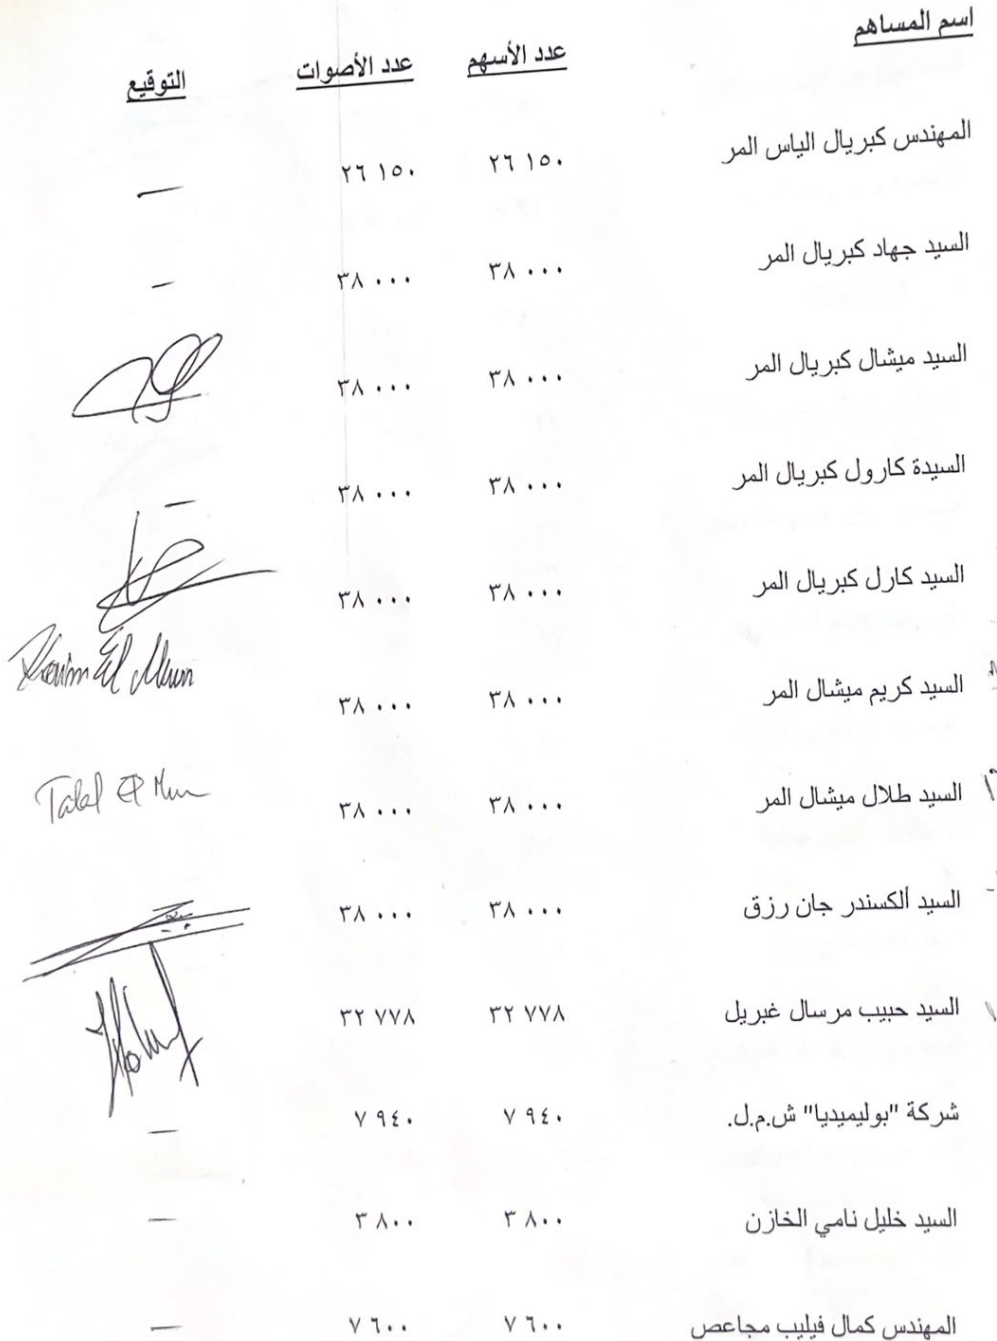 اسم المساهم عدد الأسهم عدد الأصوات التوقيع
المهندس كبريال الياس المر ٢٦ ١٥٠ ٢٦ ١٥٠ —
السيد جهاد كبريال المر ٣٨ ٠٠٠ ٣٨ ٠٠٠ —
السيد ميشال كبريال المر ٣٨ ٠٠٠ ٣٨ ٠٠٠
السيدة كارول كبريال المر ٣٨ ٠٠٠ ٣٨ ٠٠٠ —
السيد كارل كبريال المر ٣٨ ٠٠٠ ٣٨ ٠٠٠
السيد كريم ميشال المر ٣٨ ٠٠٠ ٣٨ ٠٠٠ Karim El Murr
السيد طلال ميشال المر ٣٨ ٠٠٠ ٣٨ ٠٠٠ Talal El Murr
السيد ألكسندر جان رزق ٣٨ ٠٠٠ ٣٨ ٠٠٠
السيد حبيب مرسال غبريل ٣٢ ٧٧٨ ٣٢ ٧٧٨
شركة "بوليميديا" ش.م.ل. ٧ ٩٤٠ ٧ ٩٤٠ —
السيد خليل نامي الخازن ٣ ٨٠٠ ٣ ٨٠٠ —
المهندس كمال فيليب مجاعص ٧ ٦٠٠ ٧ ٦٠٠ —